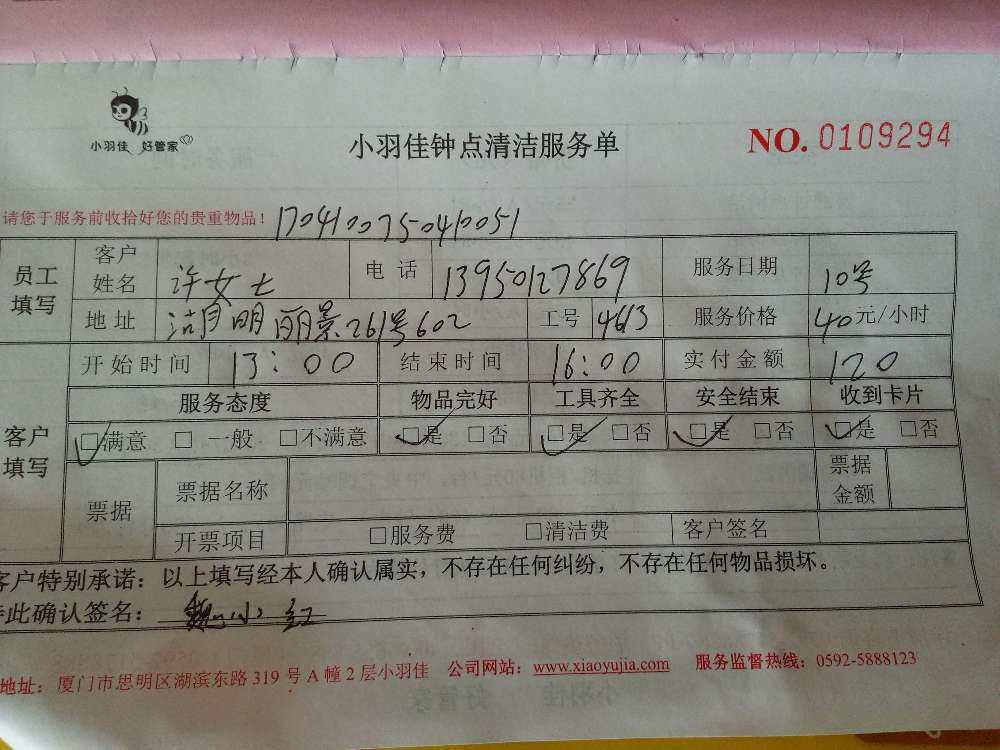 小羽佳 好管家
小羽佳钟点清洁服务单
NO. 0109294
请您于服务前收拾好您的贵重物品!
1704100750410051
员工填写 客户姓名 许女士 电话 13950127869 服务日期 10号
地址 洁月明丽景261号602 工号 4613 服务价格 40元/小时
客户填写 开始时间 13:00 结束时间 16:00 实付金额 120
服务态度 物品完好 工具齐全 安全结束 收到卡片
□满意 □一般 □不满意 □是 □否 □是 □否 □是 □否 □是 □否
票据 票据名称 票据金额
开票项目 □服务费 □清洁费 客户签名
客户特别承诺:以上填写经本人确认属实,不存在任何纠纷,不存在任何物品损坏。
此确认签名:小红
地址:厦门市思明区湖滨东路319号A幢2层小羽佳 公司网站:www.xiaoyujia.com 服务监督热线:0592-5888123